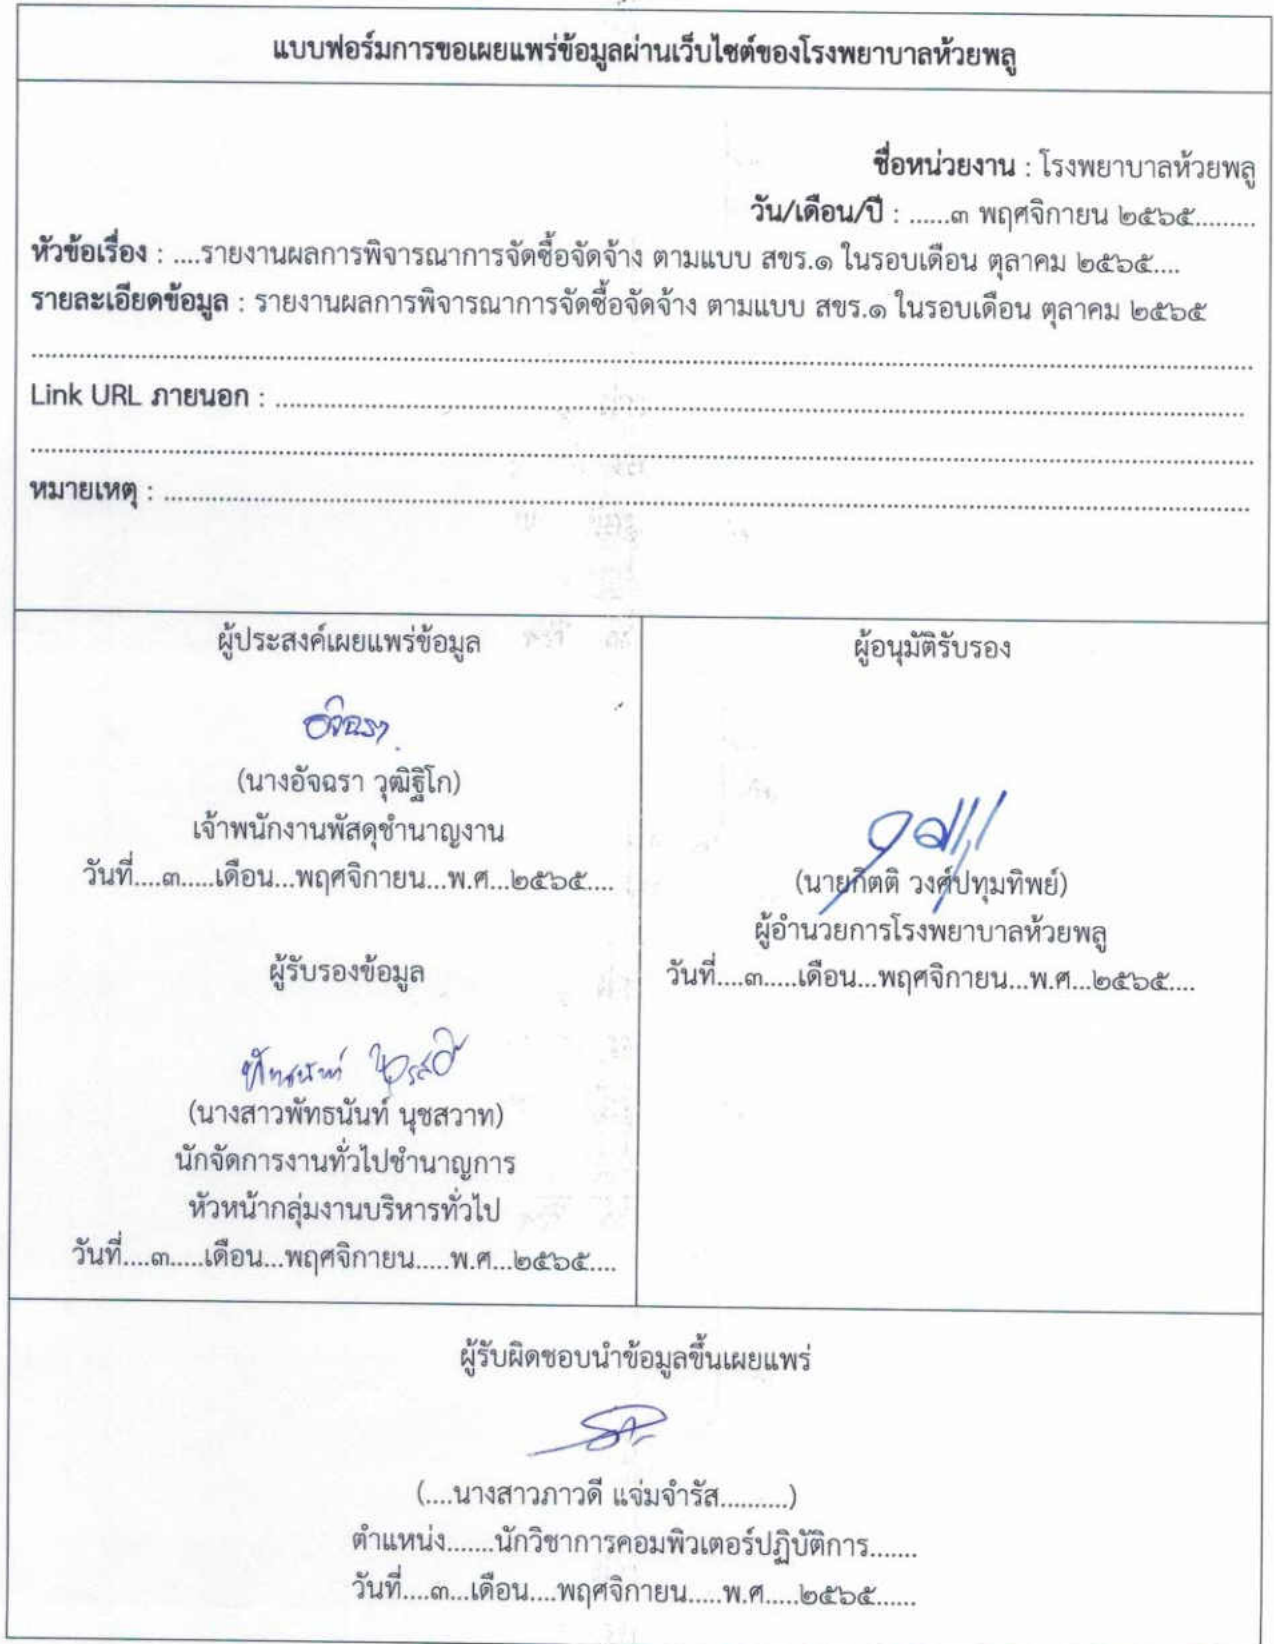 แบบฟอร์มการขอเผยแพร่ข้อมูลผ่านเว็บไซต์ของโรงพยาบาลห้วยพลู
ชื่อหน่วยงาน : โรงพยาบาลห้วยพลู
วัน/เดือน/ปี : ......๓ พฤศจิกายน ๒๕๖๕.........
หัวข้อเรื่อง : ....รายงานผลการพิจารณาการจัดซื้อจัดจ้าง ตามแบบ สขร.๑ ในรอบเดือน ตุลาคม ๒๕๖๕....
รายละเอียดข้อมูล : รายงานผลการพิจารณาการจัดซื้อจัดจ้าง ตามแบบ สขร.๑ ในรอบเดือน ตุลาคม ๒๕๖๕
Link URL ภายนอก :
หมายเหตุ :
ผู้ประสงค์เผยแพร่ข้อมูล
อัจฉรา
(นางอัจฉรา วุฒิฐิโก)
เจ้าพนักงานพัสดุชำนาญงาน
วันที่....๓.....เดือน...พฤศจิกายน...พ.ศ...๒๕๖๕....
ผู้รับรองข้อมูล
(นางสาวพัทธนันท์ นุชสวาท)
นักจัดการงานทั่วไปชำนาญการ
หัวหน้ากลุ่มงานบริหารทั่วไป
วันที่....๓.....เดือน...พฤศจิกายน.....พ.ศ...๒๕๖๕....
ผู้อนุมัติรับรอง
(นายกิตติ วงศ์ปทุมทิพย์)
ผู้อำนวยการโรงพยาบาลห้วยพลู
วันที่....๓.....เดือน...พฤศจิกายน...พ.ศ...๒๕๖๕....
ผู้รับผิดชอบนำข้อมูลขึ้นเผยแพร่
(....นางสาวภาวดี แจ่มจำรัส..........)
ตำแหน่ง.......นักวิชาการคอมพิวเตอร์ปฏิบัติการ.......
วันที่....๓...เดือน....พฤศจิกายน.....พ.ศ.....๒๕๖๕......